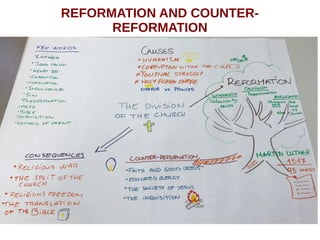 REFORMATION AND COUNTER-
REFORMATION
KEY WORDS
LUTHER
JOHN CALVIN
HENRY VIII
INDULGENCES
SIN
PREDESTINATION
FAITH
BIBLE
INQUISITION
COUNCIL OF TRENT
CAUSES
HUMANISM
CORRUPTION WITHIN THE CHURCH
POLITICAL STRUGGLE
HOLY ROMAN EMPIRE
EMPEROR VS PRINCES
THE DIVISION
OF THE CHURCH
REFORMATION
LUTHERANISM
CALVINISM
MARTIN LUTHER
1517
95 THESES
CONSEQUENCES
RELIGIOUS WAR
THE SPLIT OF THE
CHURCH
RELIGIOUS FREEDOM
THE TRANSLATION
OF THE BIBLE
COUNTER-REFORMATION
FAITH AND GOOD DEEDS
EDUCATED CLERGY
THE SOCIETY OF JESUS
THE INQUISITION